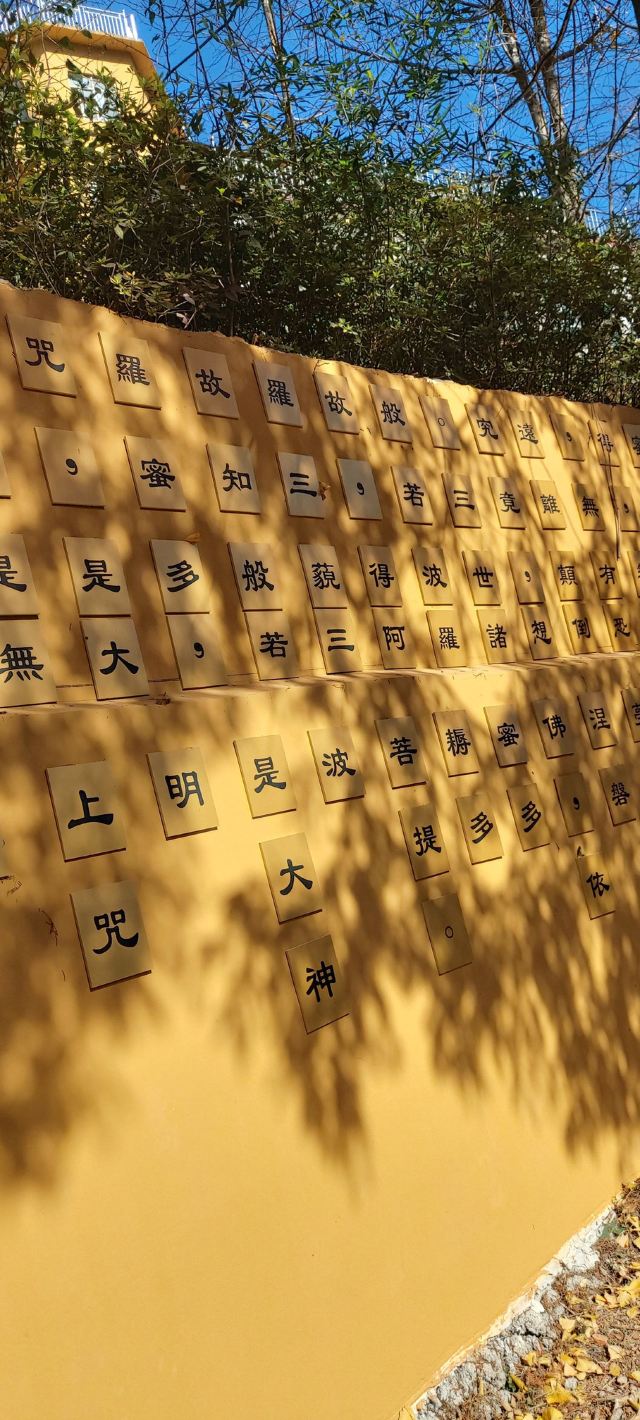 ，無有恐
遠離顛倒
究竟，想涅磐
。三世諸佛，依
般若波羅蜜多
故，得阿耨多
羅三藐三菩提。
故知般若波
羅蜜多，是大神
咒，是大明
是無上咒